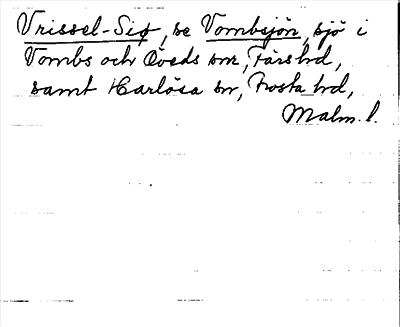 Vrissel-Siø, se Vombsjön, sjö i
Vombs och Öveds snr, Färs hd,
samt Harlösa sn, Frosta hd,
Malm. l.